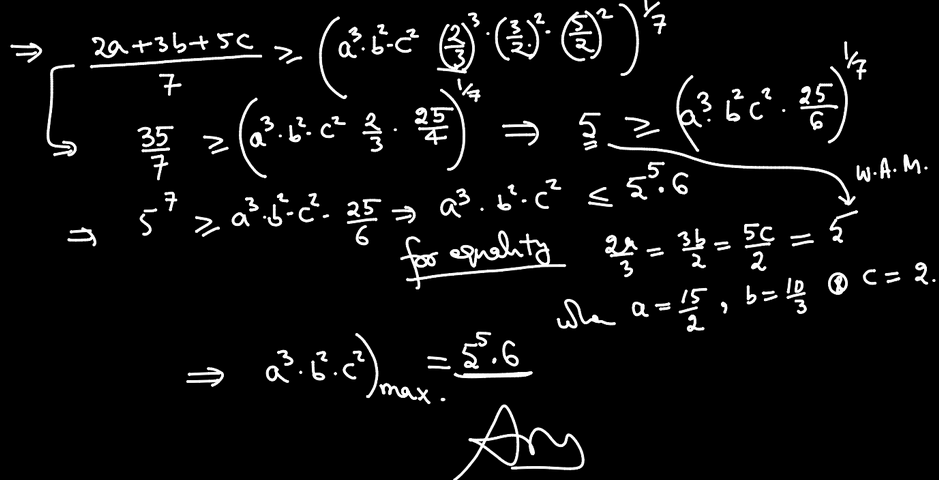 ⇒ (2a+3b+5c)/7 ≥ (a³·b²·c² (2/3)³·(3/2)²·(5/2)²)^(1/7)
⇒ 35/7 ≥ (a³·b²·c² 2/3 · 25/4)^(1/7) ⇒ 5 ≥ (a³·b²c²·25/6)^(1/7)
W.A.M.
⇒ 5⁷ ≥ a³·b²·c²·25/6 ⇒ a³·b²·c² ≤ 5⁵·6
for equality 2a/3 = 3b/2 = 5c/2 = 5
when a = 15/2, b = 10/3 & c = 2.
⇒ a³·b²·c²)max. = 5⁵·6
Ans